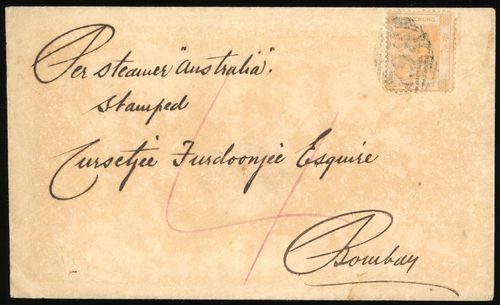 Per steamer "Australia".
stamped
Cursetjee Furdoonjee Esquire
4
Bombay
HONG KONG
B62